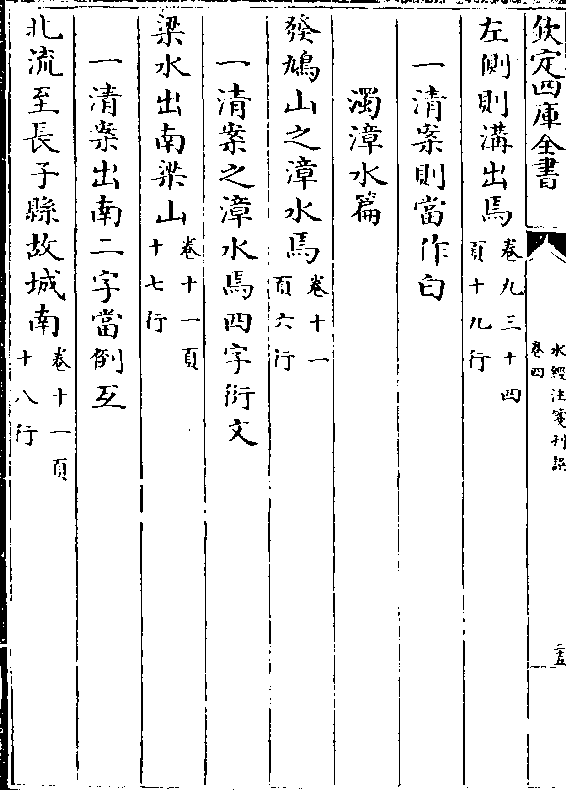 欽定四庫全書
水經注箋刊誤
卷四
二五
左側則溝出焉卷九三十四頁十九行
一清案則當作臼
濁漳水篇
發鳩山之漳水焉卷十一頁六行
一清案之漳水焉四字衍文
梁水出南梁山卷十一頁十七行
一清案出南二字當倒互
北流至長子縣故城南卷十一頁十八行